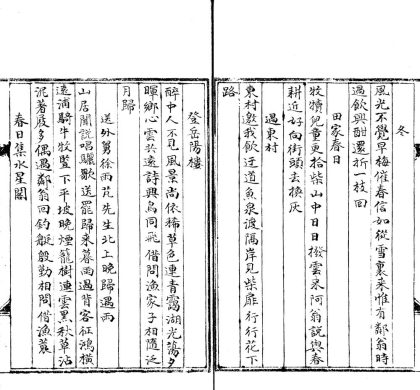 冬
風光不覺早梅催春信如從雪裏來惟有鄰翁時
過飲興酣還折一枝回
田家春日
牧犢兒童更拾柴山中日日撥雲來阿翁說與春
耕近好向街頭去換灰
過東村
東村邀我飲迂道魚泉渡隔岸見柴扉行行花下
路
登岳陽樓
醉中人不見風景尚依稀草色連青靄湖光蕩夕
暉鄉心雲共遠詩興鳥同飛借問漁家子相隨泛
月歸
送外舅徐雨花先生北上晚歸遇雨
山居聞說唱驪歌送罷歸來暮雨過背客征鴻橫
遠浦騎牛牧豎下平坡晚煙籠樹連雲黑秋草沾
泥著屐多偶遇鄰翁回釣艇殷勤相問借漁蓑
春日集水星閣